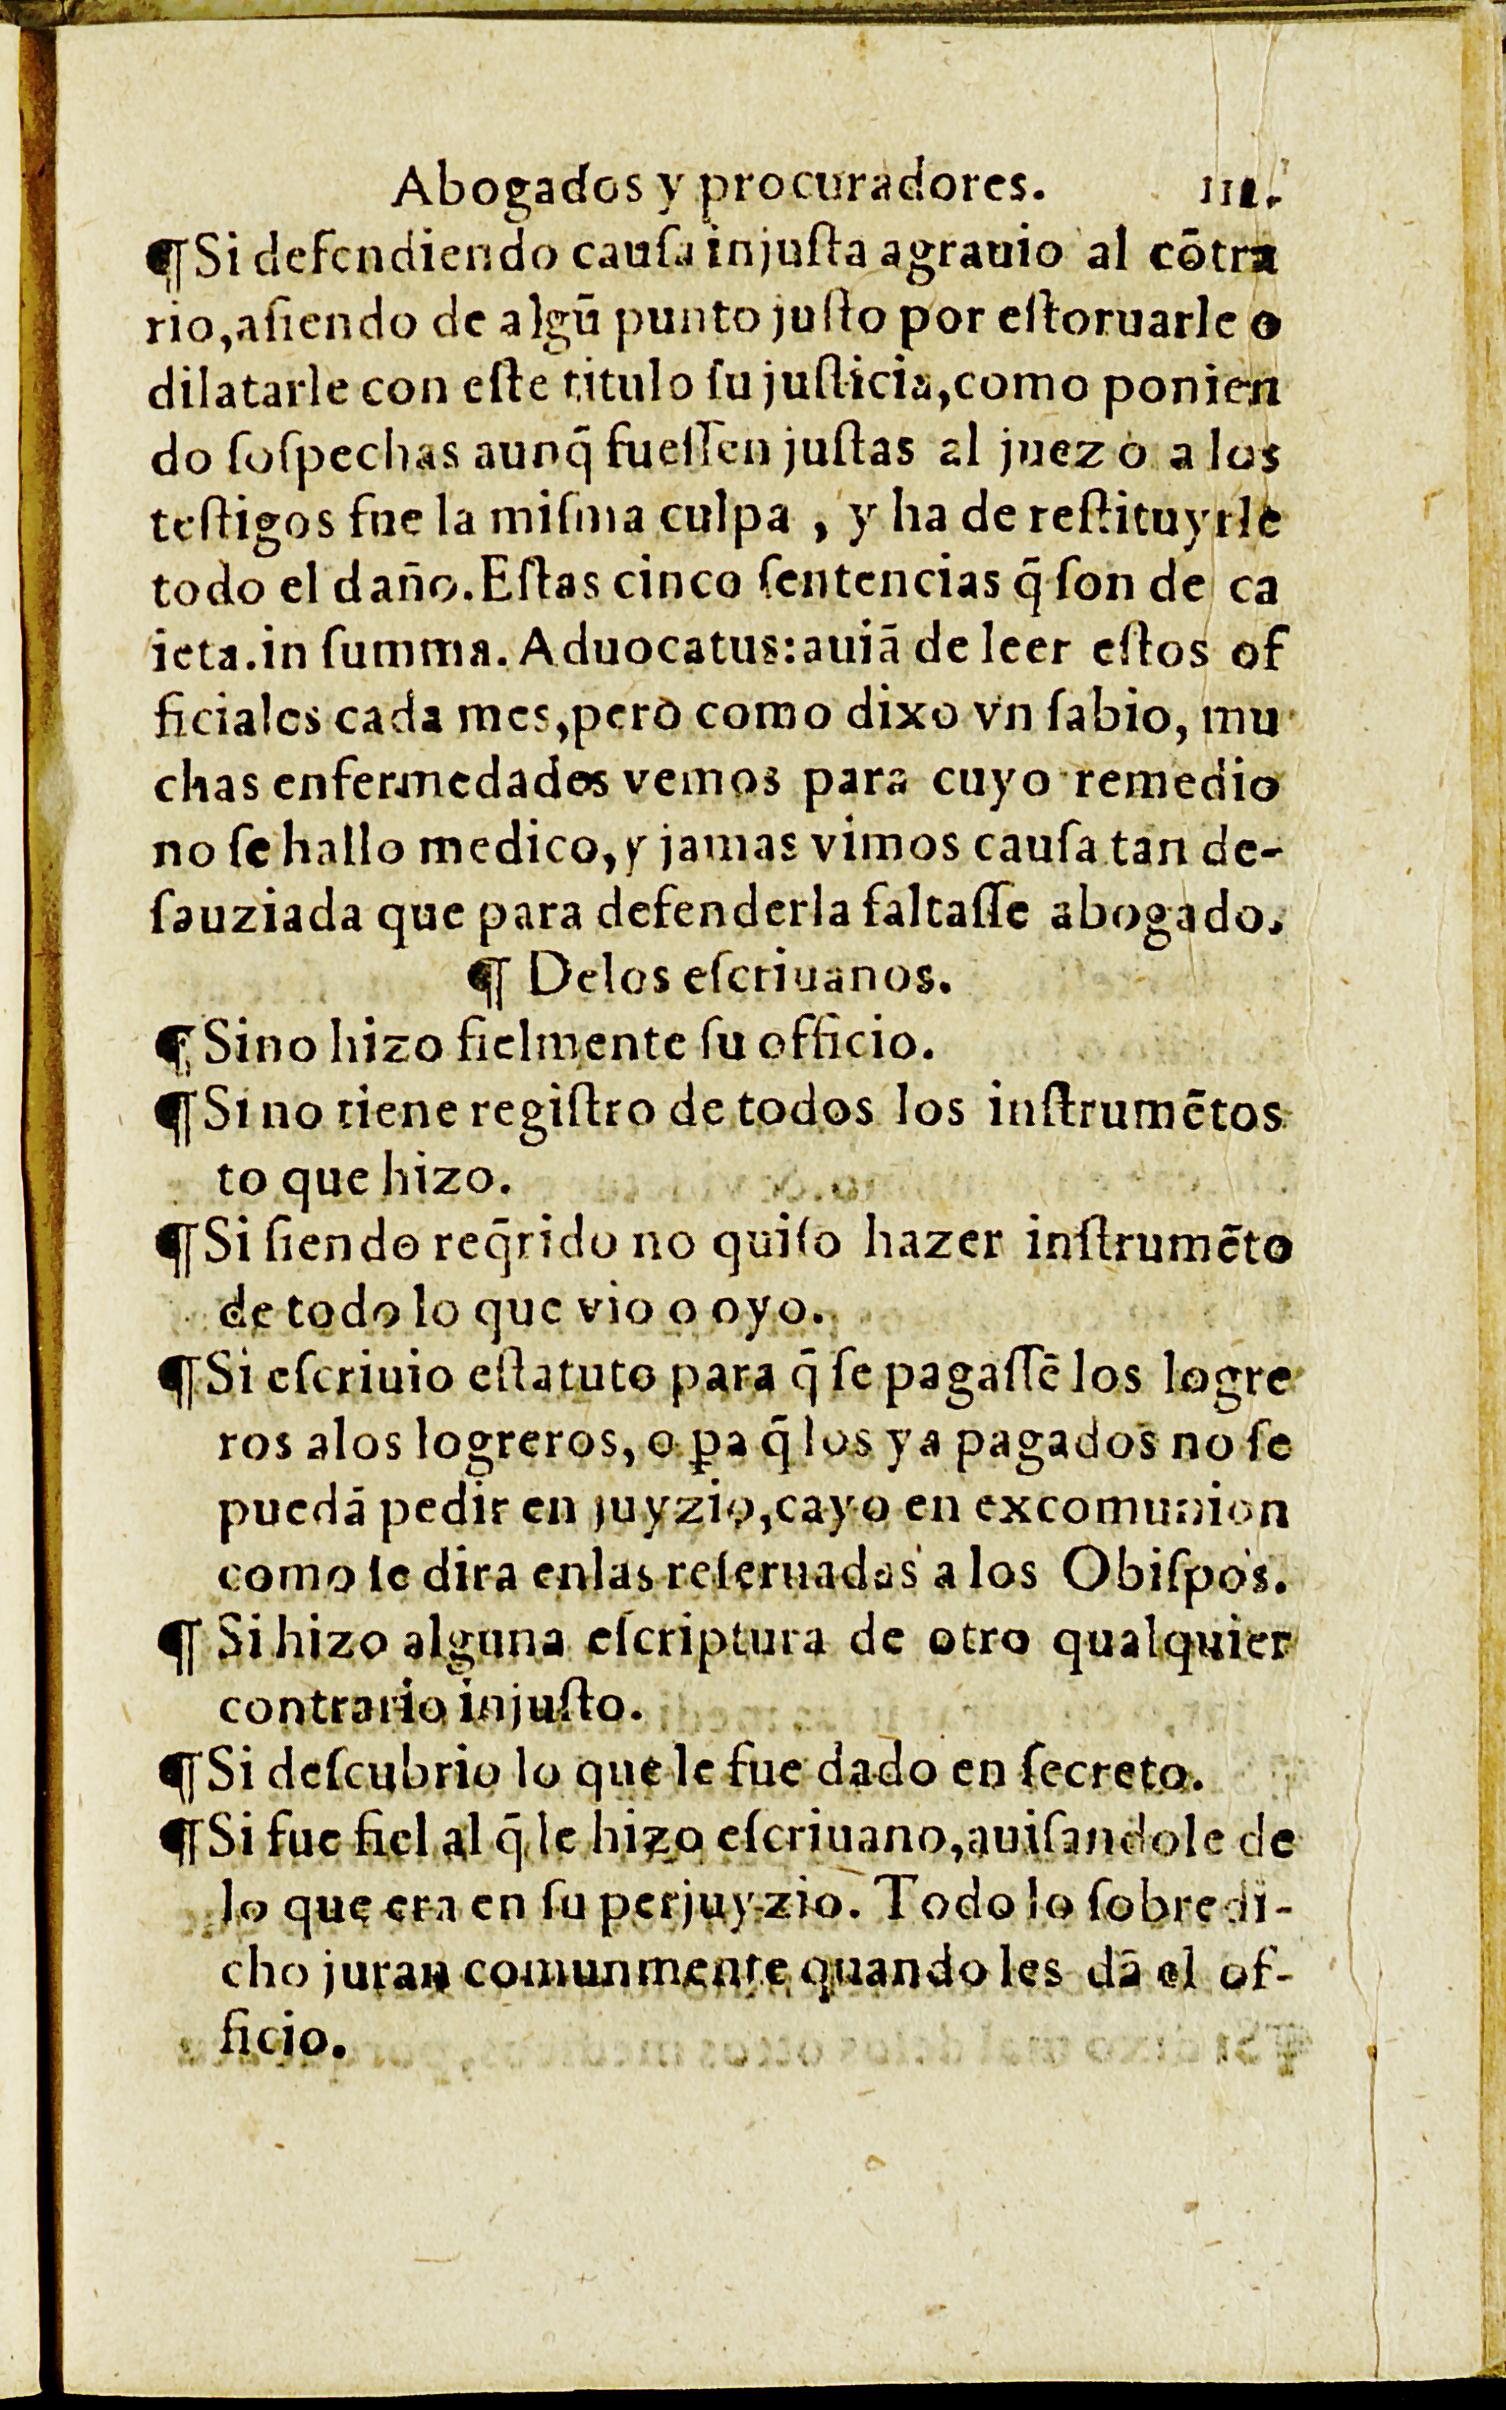 Abogados y procuradores. III.
¶Si defendiendo cauſa injuſta agrauio al cōtra
rio,aſiendo de algū punto juſto por eſtoruarle o
dilatarle con eſte titulo ſu juſticia,como ponien
do ſoſpechas aunq̄ fueſſen juſtas al juez o a los
teſtigos fue la miſma culpa , y ha de reſtituyrle
todo el daño.Eſtas cinco ſentencias q̄ ſon de ca
ieta.in ſumma. Aduocatus:auiā de leer eſtos of
ficiales cada mes,pero como dixo vn ſabio, mu
chas enfermedades vemos para cuyo remedio
no ſe hallo medico,y jamas vimos cauſa tan de-
ſauziada que para defenderla faltaſſe abogado.
¶ Delos eſcriuanos.
¶Sino hizo fielmente ſu officio.
¶Si no tiene regiſtro de todos los inſtrumētos
to que hizo.
¶Si ſiendo req̄rido no quiſo hazer inſtrumēto
de todo lo que vio o oyo.
¶Si eſcriuio eſtatuto para q̄ ſe pagaſſē los logre
ros alos logreros, o ꝑa q̄ los ya pagados no ſe
puedā pedir en juyzio,cayo en excomunion
como ſe dira enlas reſeruadas a los Obiſpos.
¶ Si hizo alguna eſcriptura de otro qualquier
contrario injuſto.
¶Si deſcubrio lo que le fue dado en ſecreto.
¶Si fue fiel al q̄ le hizo eſcriuano,auiſandole de
lo que era en ſu perjuyzio. Todo lo ſobredi-
cho juran comunmente quando les dā el of-
ficio.